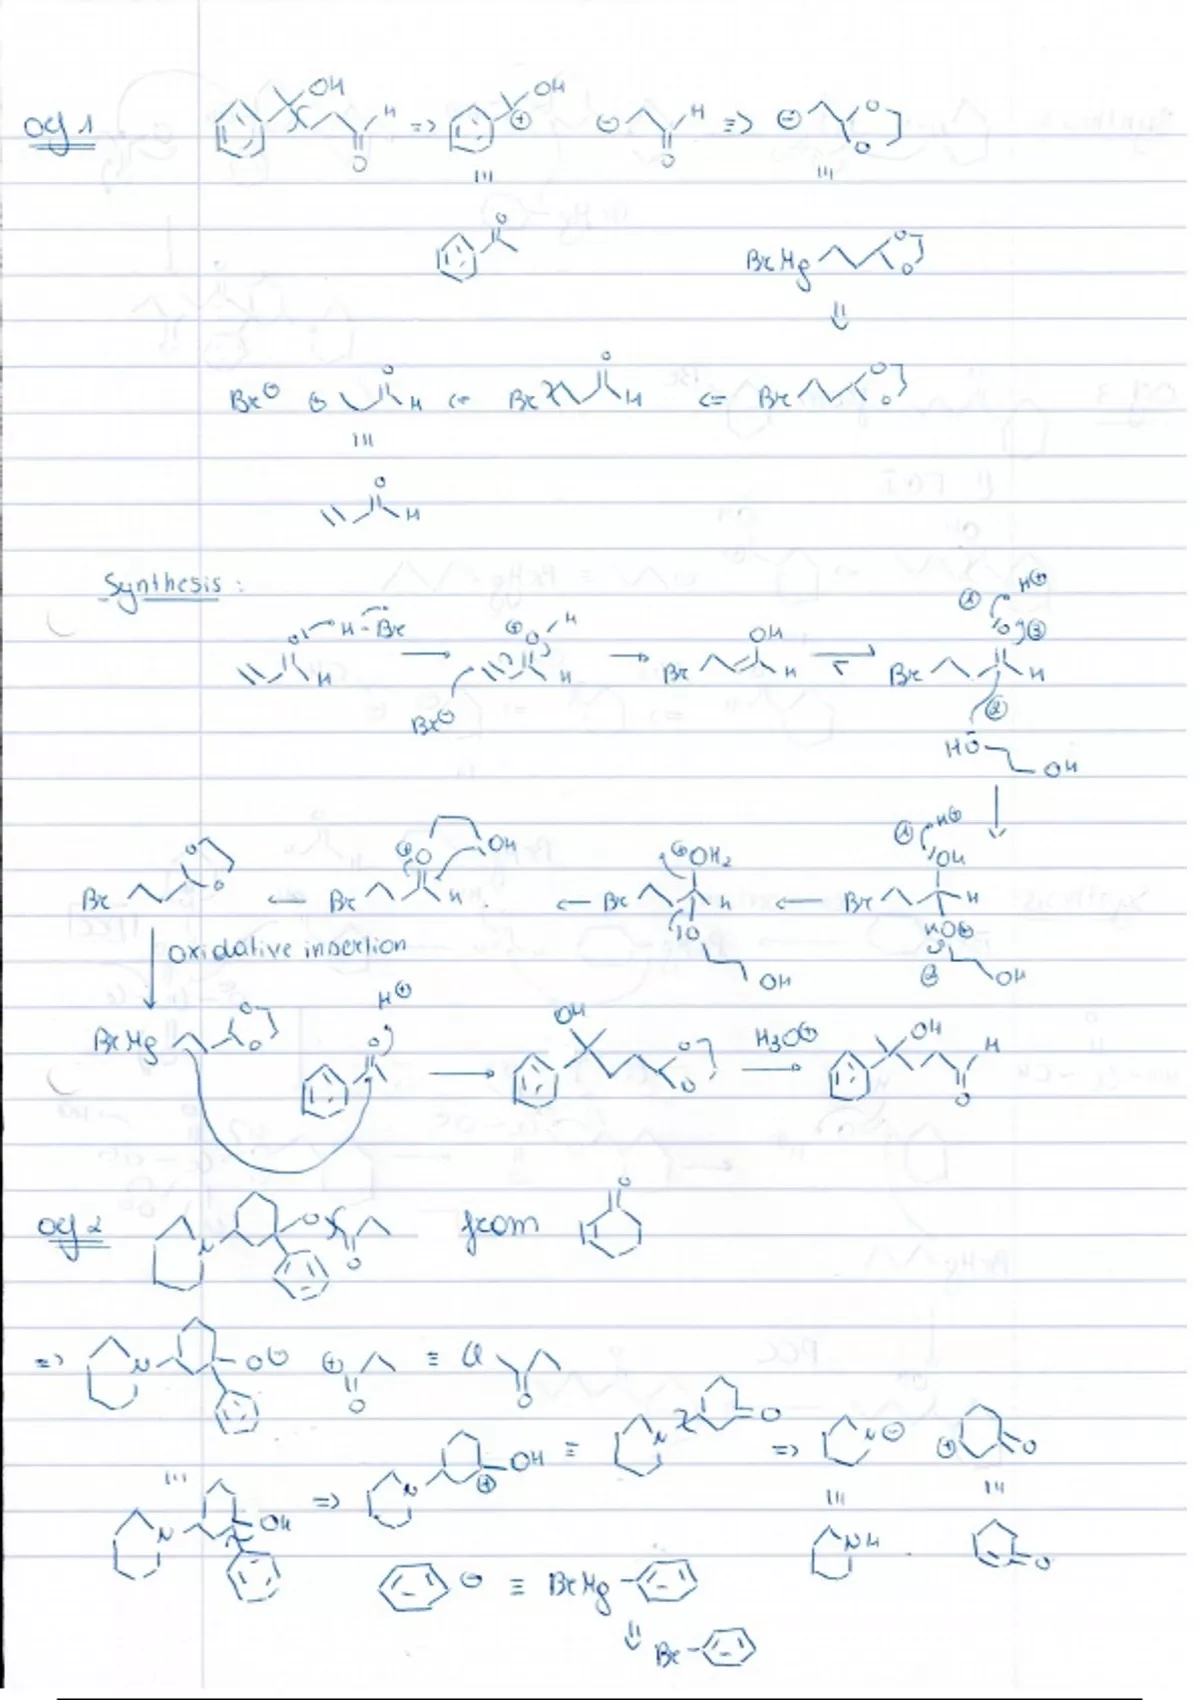 Oef 1
OH
OH
H
H
⇒
⊕
⊖
⇒
⊖
O
O
O
O
O
O
BrMg
O
O
Br⊖
⊕
O
H
Br
O
H
Br
O
O
O
H
Synthesis :
H⊕
O
H-Br
H
⊕
O
H
OH
H
Br
H
Br
O
H
Br⊖
HO
OH
H⊕
OH
OH
⊕OH2
Br
O
O
Br
⊕O
H
Br
H
O
OH
Br
H
HO⊕
OH
oxidative insertion
BrMg
O
O
H⊕
O
OH
O
O
H3O⊕
OH
H
O
Oef 2
N
O
O
from
O
⇒
N
O⊖
⊕
O
≡
Cl
O
N
OH
⇒
N
⊕
OH
≡
N
O
⇒
N⊖
⊕
O
NH
O
⊖
≡
BrMg
Br